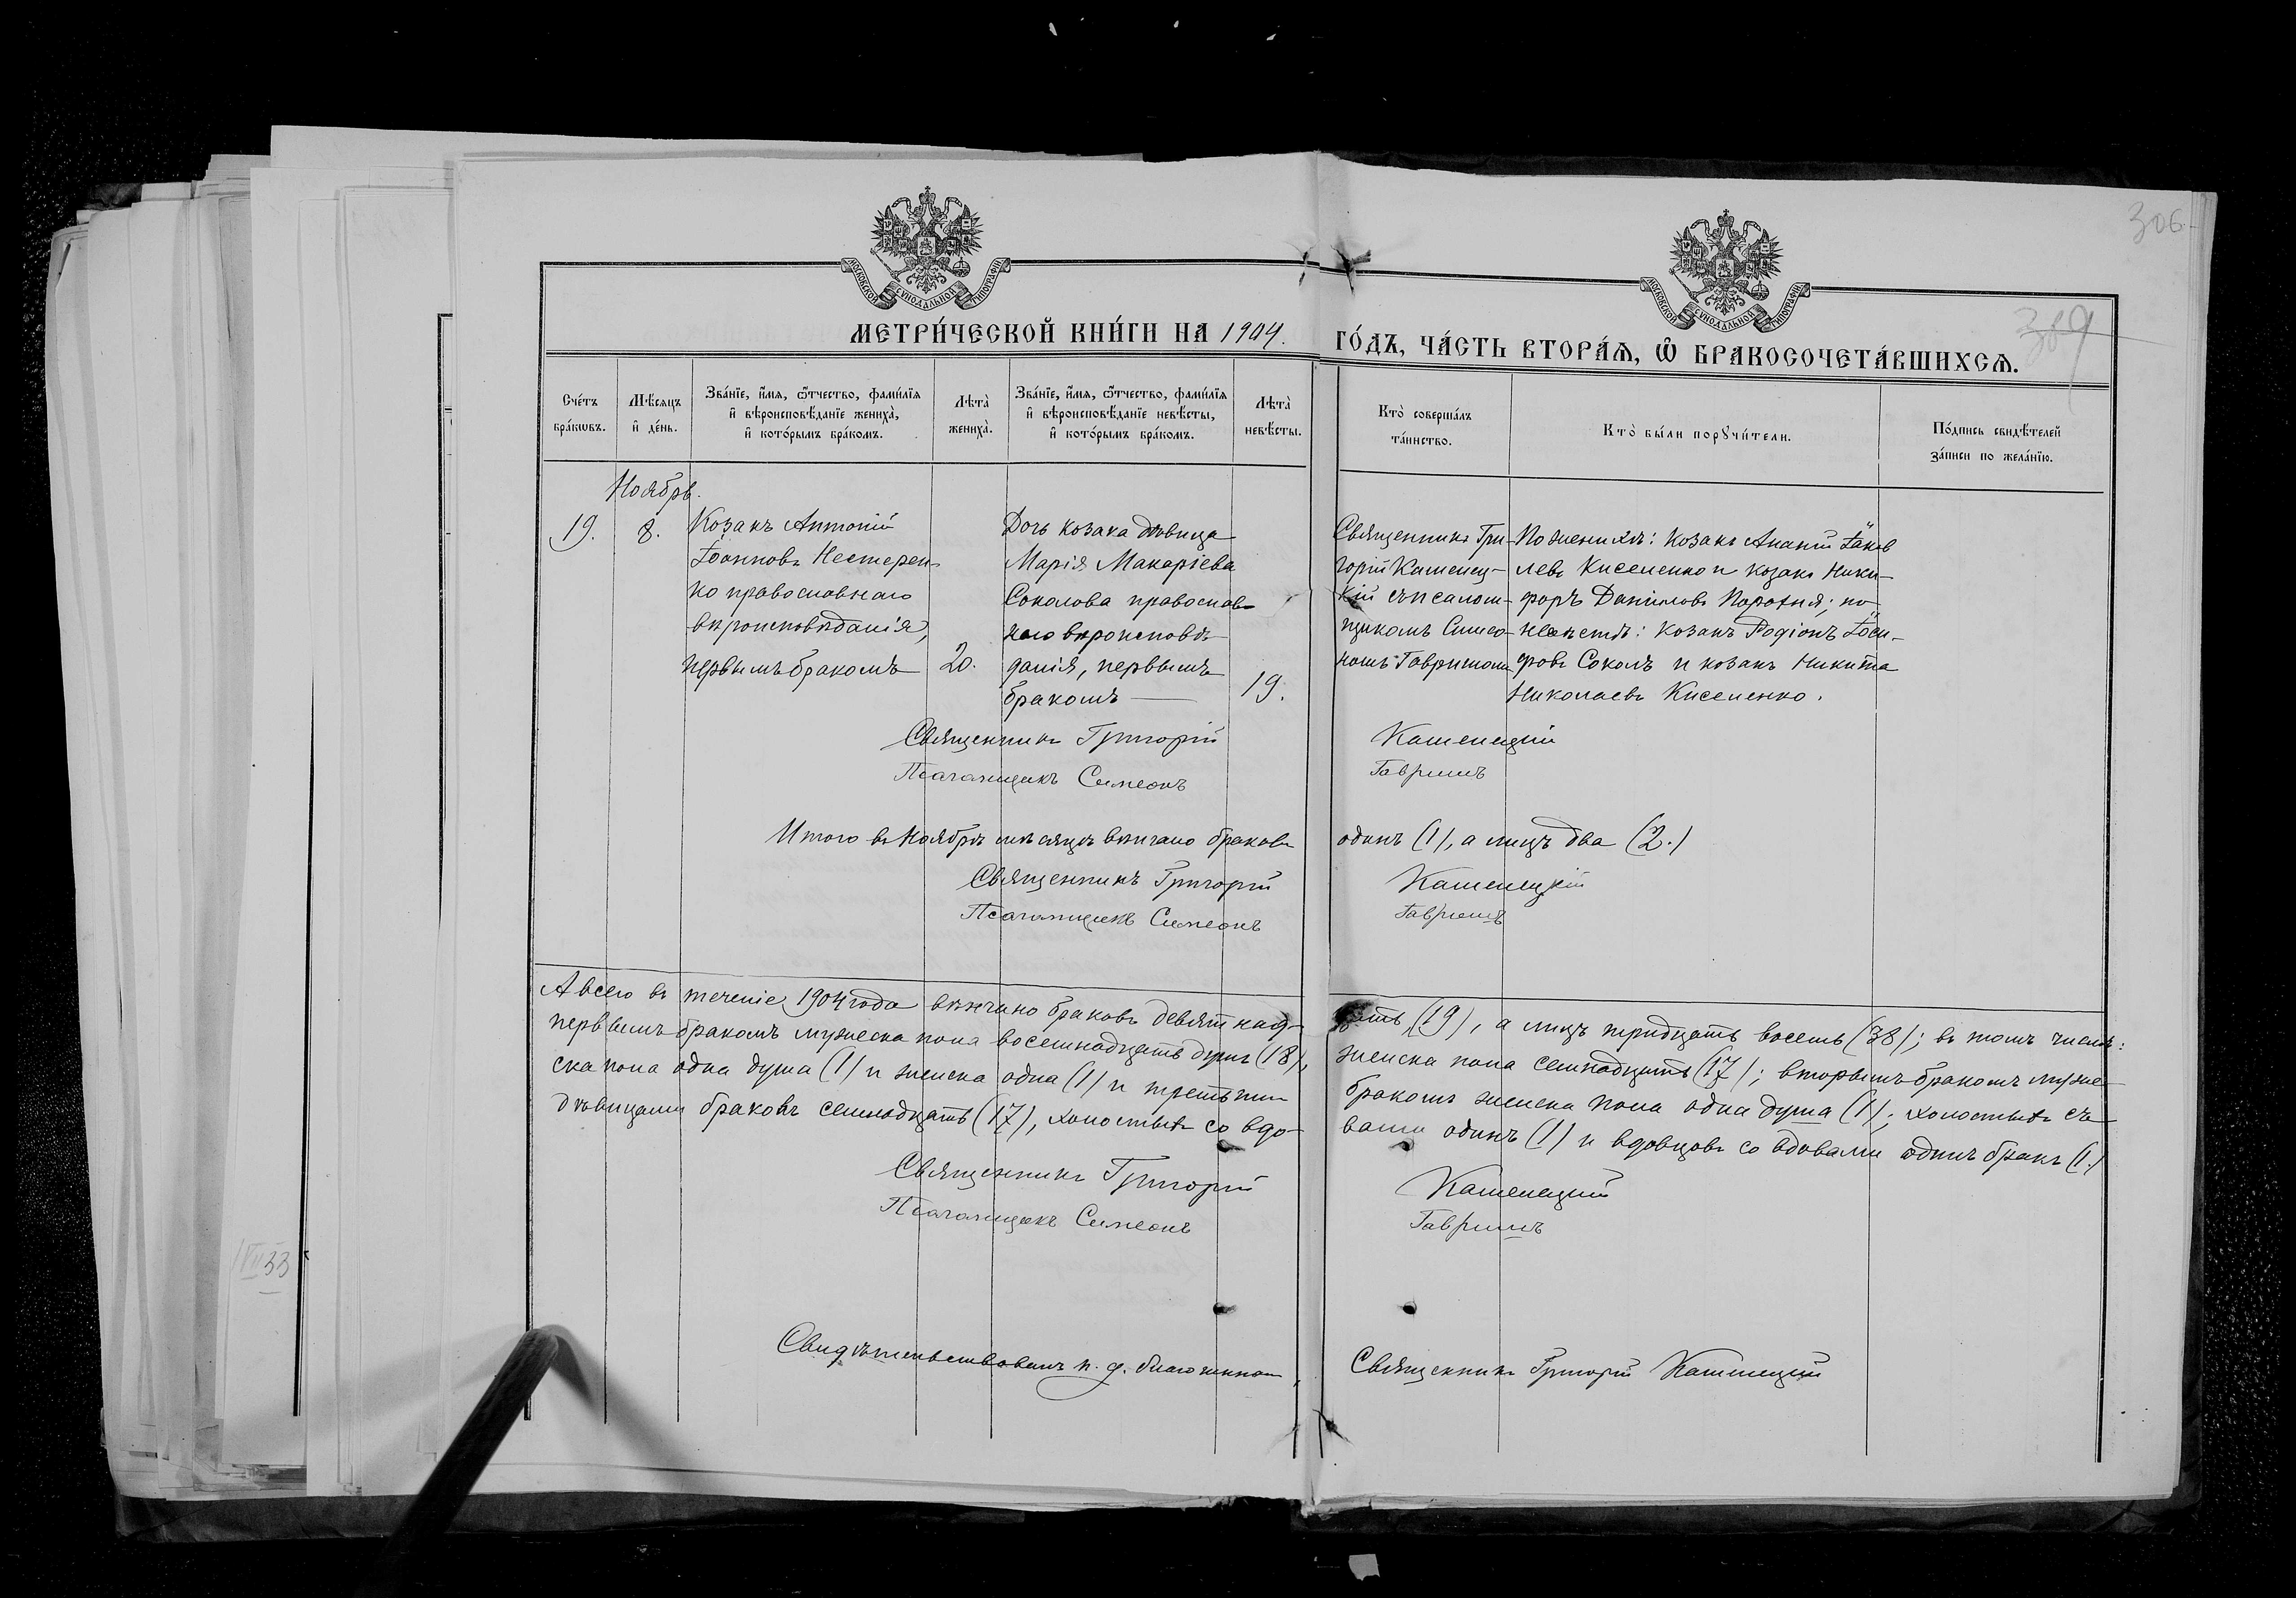 306
309
МОСКОВСКОЙ СѴНОДАЛЬНОЙ ТИПОГРАФІИ
МОСКОВСКОЙ СѴНОДАЛЬНОЙ ТИПОГРАФІИ
МЕТРИ́ЧЕСКОЙ КНИ́ГИ НА 1904.
ГО́ДЪ, ЧА́СТЬ ВТОРА́Ѧ, Ѡ҆ БРАКОСОЧЕТА́ВШИХСѦ.
Сче́тъ бра́кѡвъ.
Мѣ́сѧцъ и҆ де́нь.
Зва́нїе, и҆́мѧ, ѻ҆́тчество, фами́лїѧ и҆ вѣроисповѣ́данїе жениха̀, и҆ кото́рымъ бра́комъ.
Лѣта̀ жениха̀.
Зва́нїе, и҆́мѧ, ѻ҆́тчество, фами́лїѧ и҆ вѣроисповѣ́данїе невѣ́сты, и҆ кото́рымъ бра́комъ.
Лѣта̀ невѣ́сты.
Кто̀ соверша́лъ та́инство.
Кто̀ бы́ли порꙋчи́тели.
По́дпись свидѣ́телей за́писи по жела́нїю.
Ноябрь.
19.
8.
Козакъ Антоній
Іоанновъ Нестерен-
ко православнаго
вѣроисповѣданія,
первымъ бракомъ
20.
Дочь козака дѣвица
Марія Макаріева
Соколова православ-
наго вѣроисповѣ-
данія, первымъ
бракомъ
19.
Священникъ Гри-
горій Каменец-
кій съ псалом-
щикомъ Симео-
номъ Гавришомъ
По женихѣ: козакъ Ананій Іаков
левъ Киселенко и козакъ Ники-
форъ Даниловъ Порохня; по
невѣстѣ: козакъ Родіонъ Іоси-
фовъ Соколъ и козакъ Никита
Николаевъ Киселенко.
Священникъ Григорій Каменецкій
Псаломщикъ Симеонъ Гавришъ
Итого въ Ноябрѣ мѣсяцѣ вѣнчано браковъ одинъ (1), а лицъ два (2.)
Священникъ Григорій Каменецкій
Псаломщикъ Симеонъ Гавришъ
А всего въ теченіе 1904 года вѣнчано браковъ девятнад-цать (19), а лицъ тридцать восемь (38); въ томъ числѣ:
первымъ бракомъ мужеска пола восемнадцать душъ (18), женска пола семнадцать (17); вторымъ бракомъ муже-
ска пола одна душа (1) и женска одна (1) и третьимъ бракомъ женска пола одна душа (1); холостыхъ съ
дѣвицами браковъ семнадцать (17), холостыхъ со вдо-вами одинъ (1) и вдовцовъ со вдовами одинъ бракъ (1.)
Священникъ Григорій Каменецкій
Псаломщикъ Симеонъ Гавришъ
Свидѣтельствовалъ и. д. благочиннаго, Священникъ Григорій Каменецкій
33